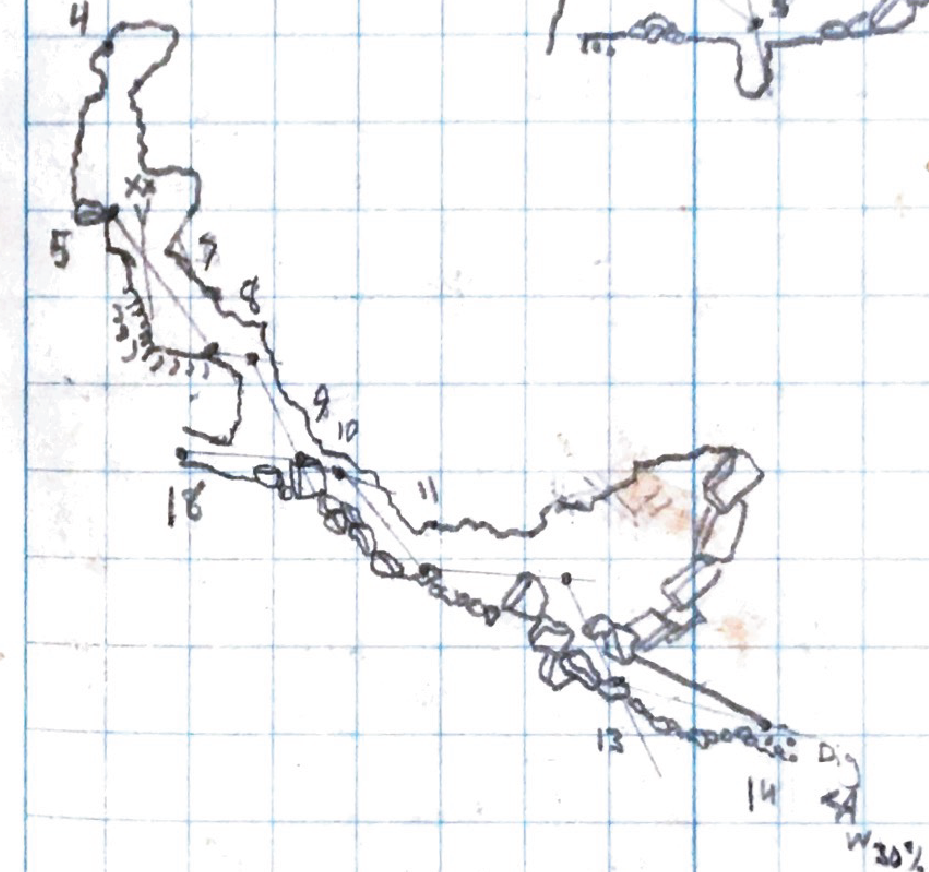 4
5
7
8
9
10
11
18
13
14
Dig
W 30%